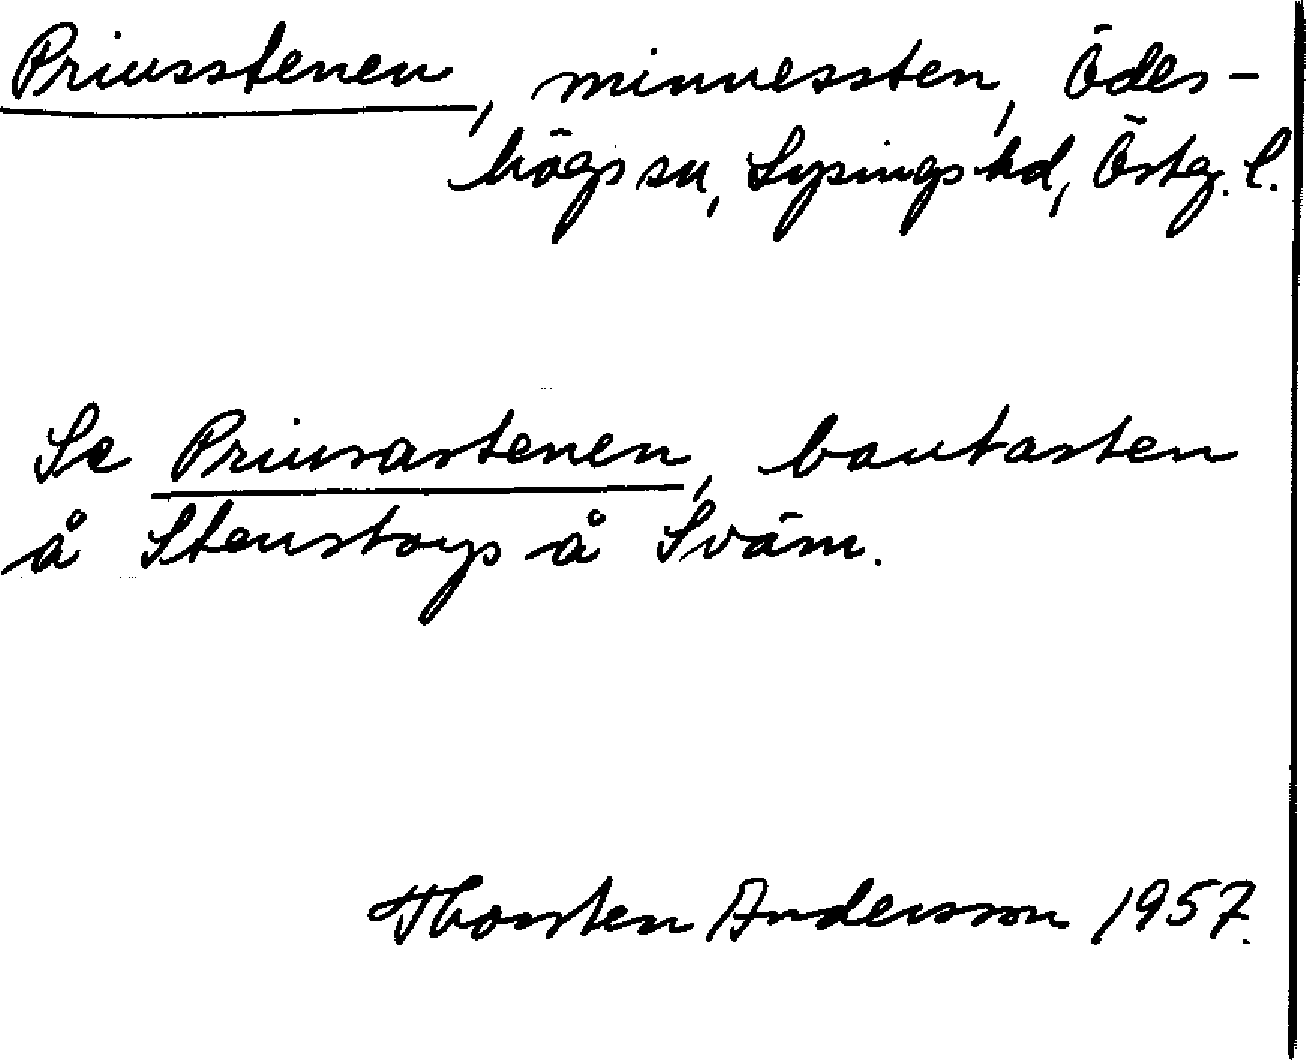 Prinsstenen, minnessten, Ödes-
högs sn, Lysings hd, Östg. l.
Se Prinsastenen, bautasten
å Stenstorps å Sväm.
Thorsten Andersson 1957.